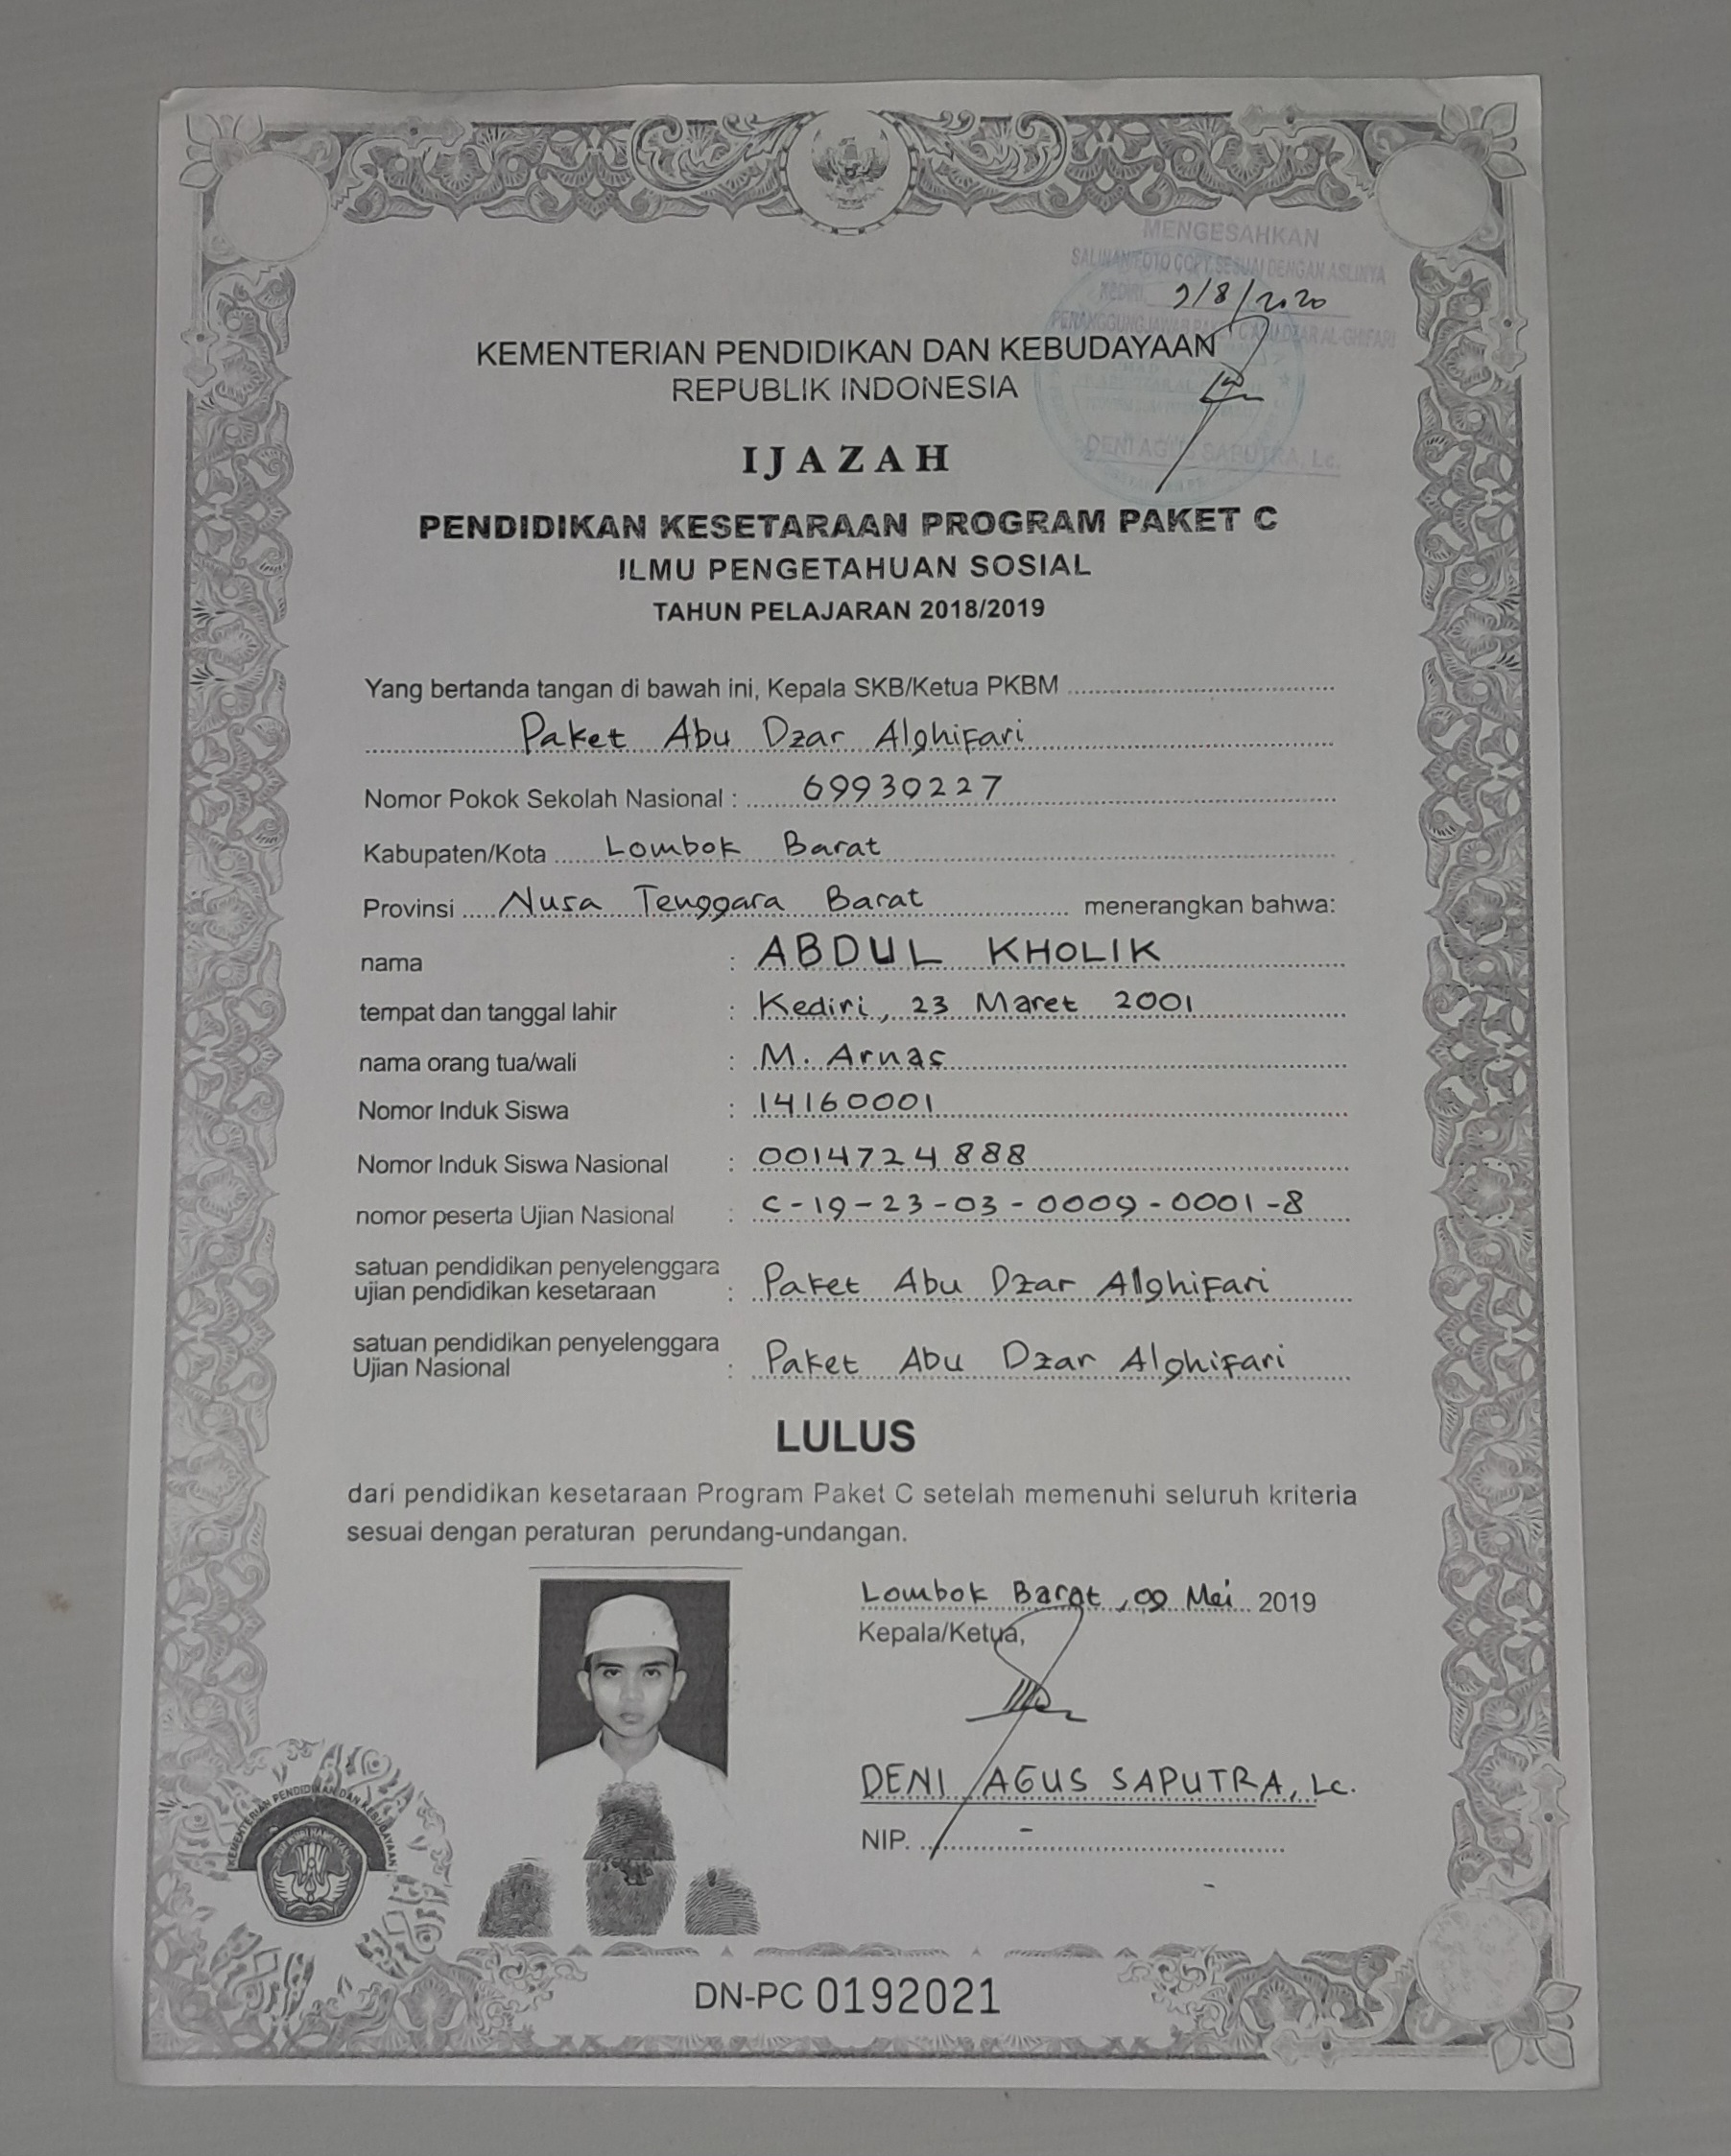 MENGESAHKAN
SALINAN/FOTO COPY SESUAI DENGAN ASLINYA
KEDIRI 9/8/2020
PENANGGUNGJAWAB PAKET C ABU DZAR AL-GHIFARI
KEMENTERIAN PENDIDIKAN DAN KEBUDAYAAN
REPUBLIK INDONESIA
DENI AGUS SAPUTRA, Lc.
IJAZAH
PENDIDIKAN KESETARAAN PROGRAM PAKET C
ILMU PENGETAHUAN SOSIAL
TAHUN PELAJARAN 2018/2019
Yang bertanda tangan di bawah ini, Kepala SKB/Ketua PKBM
Paket Abu Dzar Alghifari
Nomor Pokok Sekolah Nasional : 69930227
Kabupaten/Kota Lombok Barat
Provinsi Nusa Tenggara Barat menerangkan bahwa:
nama : ABDUL KHOLIK
tempat dan tanggal lahir : Kediri, 23 Maret 2001
nama orang tua/wali : M. Arnas
Nomor Induk Siswa : 14160001
Nomor Induk Siswa Nasional : 0014724888
nomor peserta Ujian Nasional : C-19-23-03-0009-0001-8
satuan pendidikan penyelenggara
ujian pendidikan kesetaraan : Paket Abu Dzar Alghifari
satuan pendidikan penyelenggara
Ujian Nasional : Paket Abu Dzar Alghifari
LULUS
dari pendidikan kesetaraan Program Paket C setelah memenuhi seluruh kriteria
sesuai dengan peraturan perundang-undangan.
Lombok Barat, 09 Mei 2019
Kepala/Ketua,
DENI AGUS SAPUTRA, Lc.
NIP. -
KEMENTERIAN PENDIDIKAN DAN KEBUDAYAAN
TUT WURI HANDAYANI
DN-PC 0192021